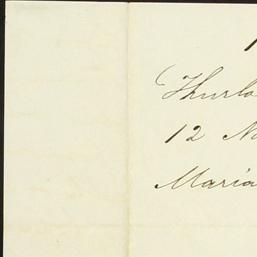 Thurlo
12 No
Maria